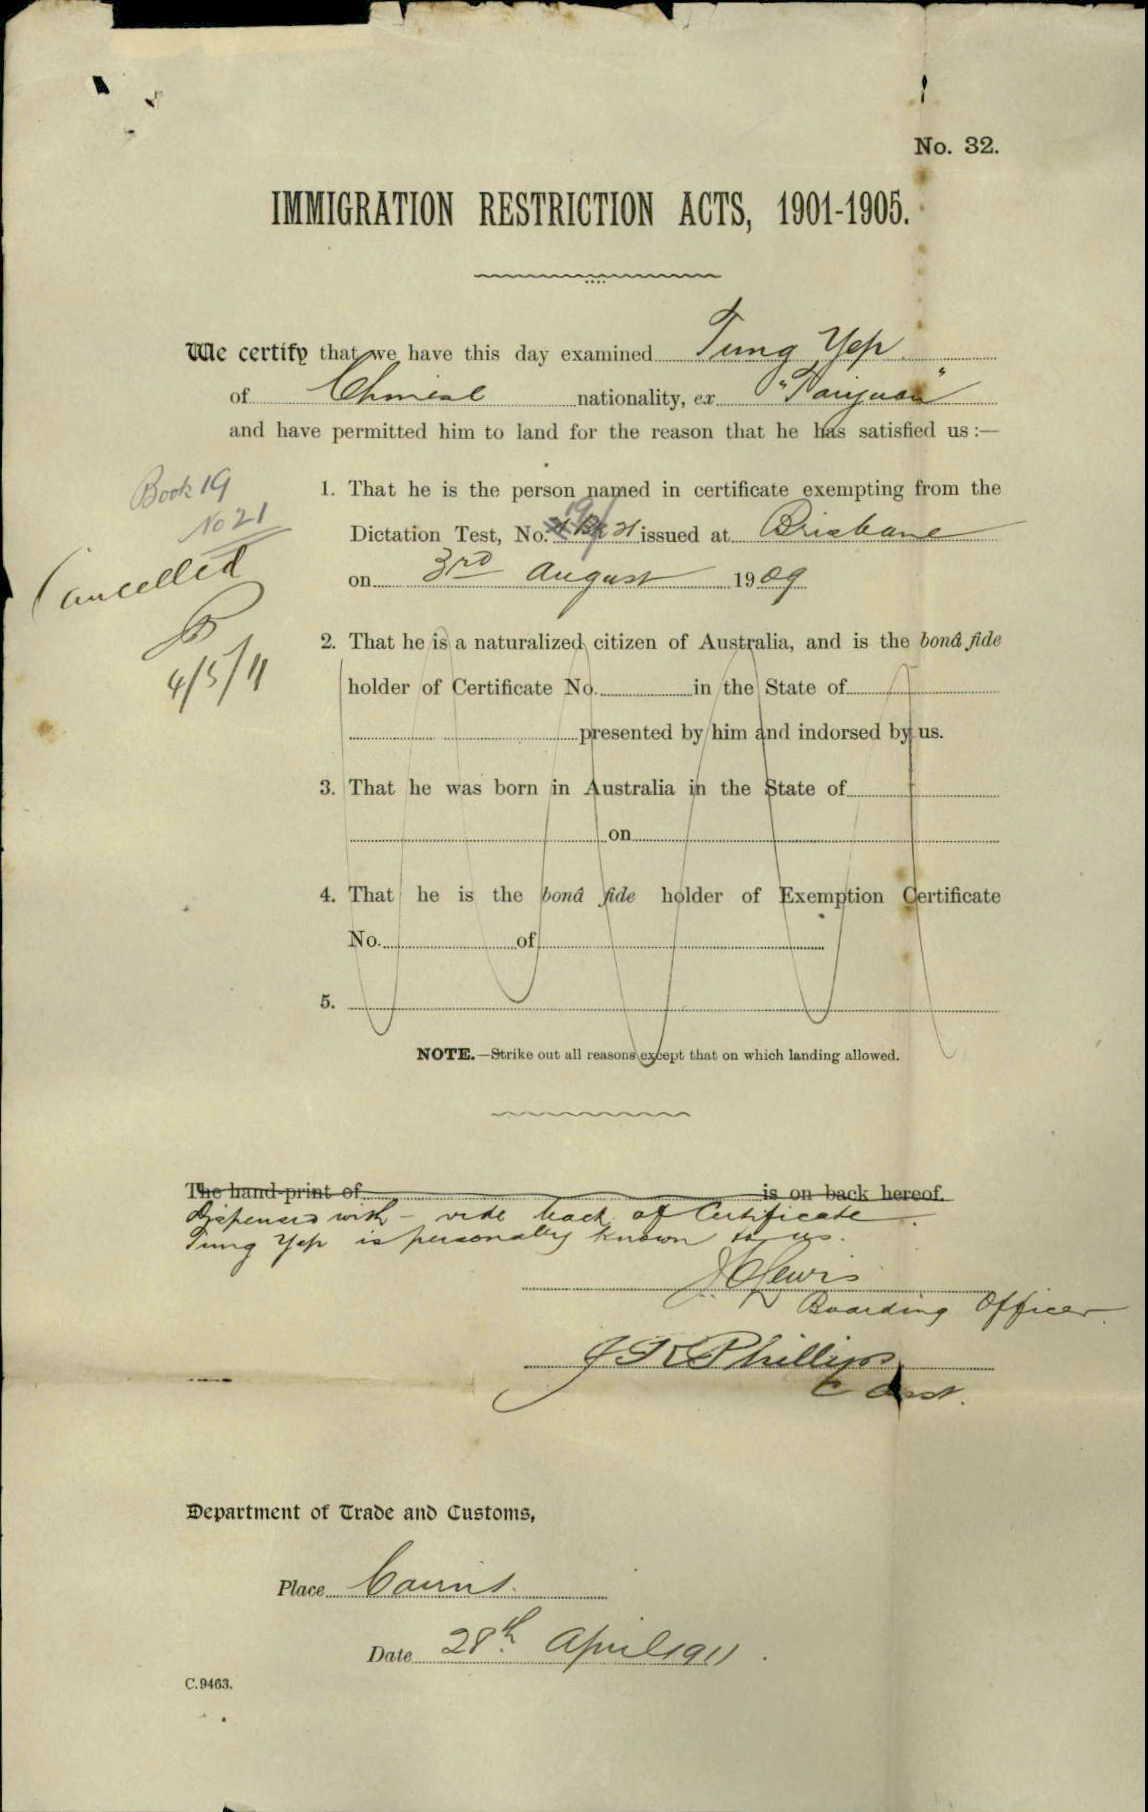 No. 32.
IMMIGRATION RESTRICTION ACTS, 1901-1905.
We certify that we have this day examined Tung Yep
of Chinese nationality, ex "Taiyuan"
and have permitted him to land for the reason that he has satisfied us :—
Book 19
No 21
Cancelled
4/5/11
1. That he is the person named in certificate exempting from the
Dictation Test, No. 19/21 issued at Brisbane
on 3rd August 1909
2. That he is a naturalized citizen of Australia, and is the bonâ fide
holder of Certificate No. in the State of
presented by him and indorsed by us.
3. That he was born in Australia in the State of
on
4. That he is the bonâ fide holder of Exemption Certificate
No. of
5.
NOTE.—Strike out all reasons except that on which landing allowed.
The hand-print of is on back hereof.
Dispensed with – vide back of Certificate.
Tung Yep is personally known to us.
J Lewis
Boarding Officer.
J K Phillips
Department of Trade and Customs,
Place Cairns.
Date 28th April 1911.
C.9463.